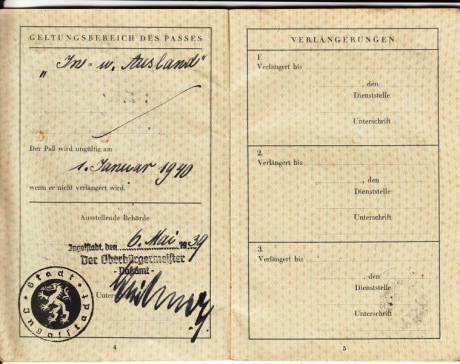 GELTUNGSBEREICH DES PASSES
„In- u. Ausland"
Der Paß wird ungültig am
1. Januar 1940
wenn er nicht verlängert wird.
Ausstellende Behörde
Ingolstadt, den 6. Mai 1939
Der Oberbürgermeister
- Paßamt -
Stadt Ingolstadt
4
VERLÄNGERUNGEN
1.
Verlängert bis
, den
Dienststelle
Unterschrift
2.
Verlängert bis
, den
Dienststelle
Unterschrift
3.
Verlängert bis
, den
Dienststelle
Unterschrift
5